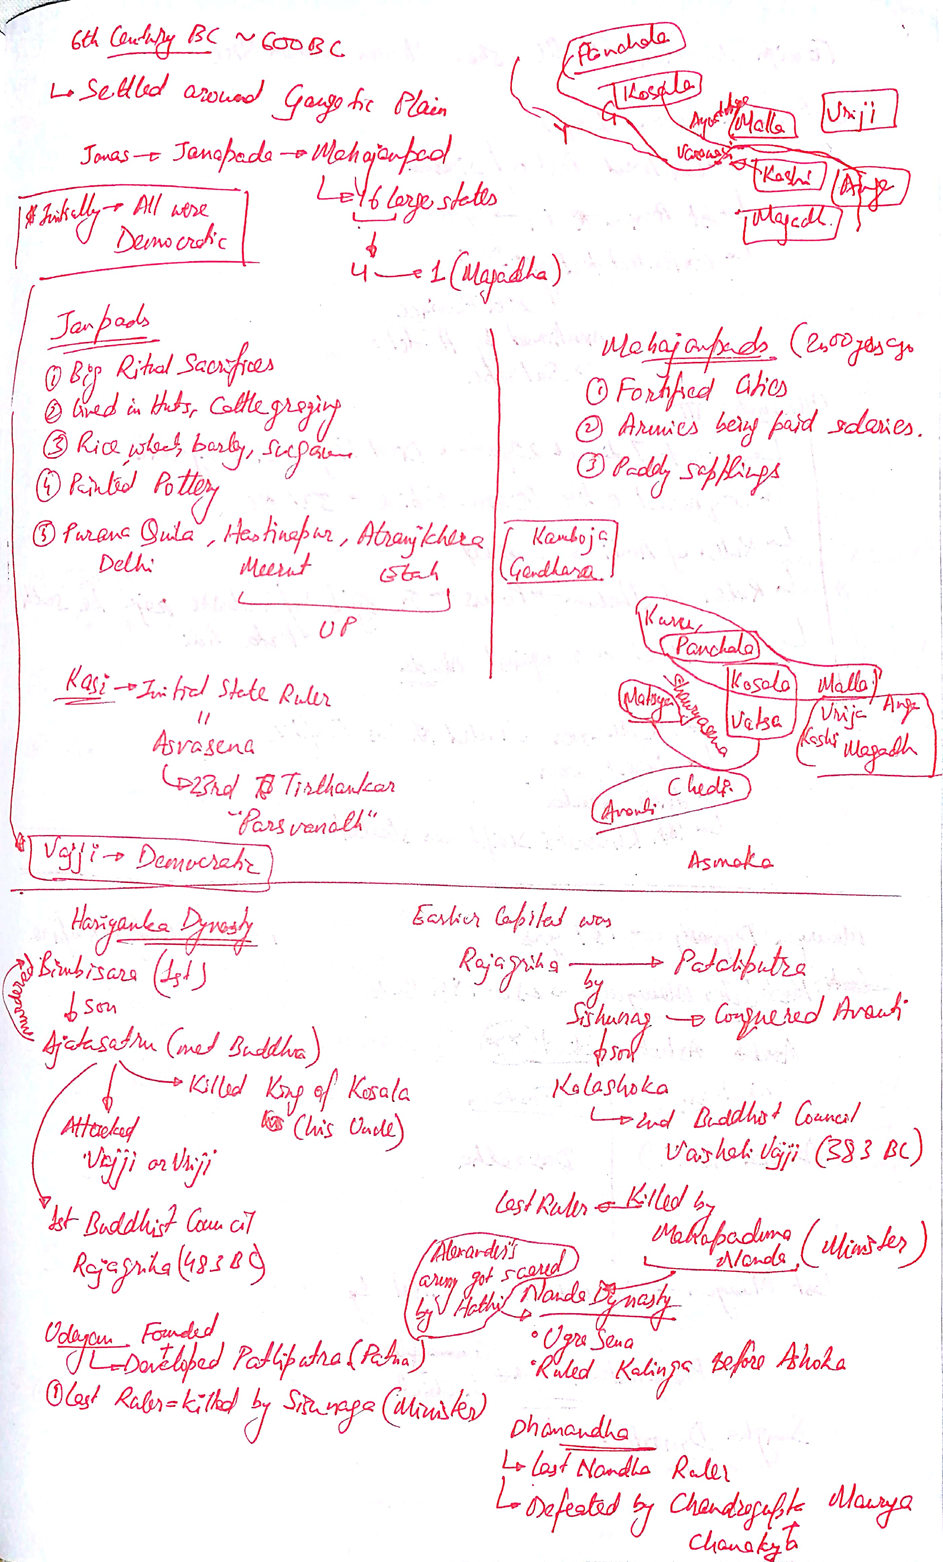 6th Century BC ~ 600 BC
↳ Settled around Gangetic Plain
Janas → Janapada → Mahajanpad
↳ 16 large states
4 → 1 (Magadha)
Initially → All were
Democratic
Panchala
Kosala
Ayodhya
Malla
Vriji
Y
G
Varanasi
Kashi
Anga
Magadh.
Janpads
① Big Ritual Sacrifices
② Lived in Huts, Cattle grazing
③ Rice, wheat, barley, sugarcane
④ Painted Pottery
⑤ Purana Quila, Hastinapur, Atranjkhera
Delhi Meerut Etah
UP
Mahajanpads (2500 years ago
① Fortified Cities
② Armies being paid salaries.
③ Paddy sapplings
Kamboja
Gandhara
Kuru,
Panchala
Kosala
Malla
Matsya
Shauryasena
Vatsa
Vrija
Anga
Kashi
Magadh
Chedi
Avanti.
Asmaka
Kasi → Initial State Ruler
"
Asvasena
↳ 23rd Tirthankar
"Parsvanath"
Vajji → Democratic
Hariyanka Dynasty
Bimbisara (1st)
↓ son
murdered
Ajatasatru (met Buddha)
→ Killed King of Kosala
(his Uncle)
Attacked
Vajji or Vriji
1st Buddhist Council
Rajagriha (483 BC)
Udayan Founded
↳ Developed Patliputra (Patna)
① Last Ruler = killed by Sisunaga (Minister)
Earlier Capital was
Rajagriha → Pataliputra
by
Sishunag → Conquered Avanti
↓ son
Kalashoka
↳ 2nd Buddhist Council
Vaishali Vajji (383 BC)
Last Ruler ← Killed by
Mahapaduma
Nanda (Minister)
Alexander's
army got scared
by Hathi
Nanda Dynasty
• Ugra Sena
• Ruled Kalinga Before Ashoka
Dhanandha
↳ Last Nandha Ruler
↳ Defeated by Chandragupta Maurya
+
Chanakya